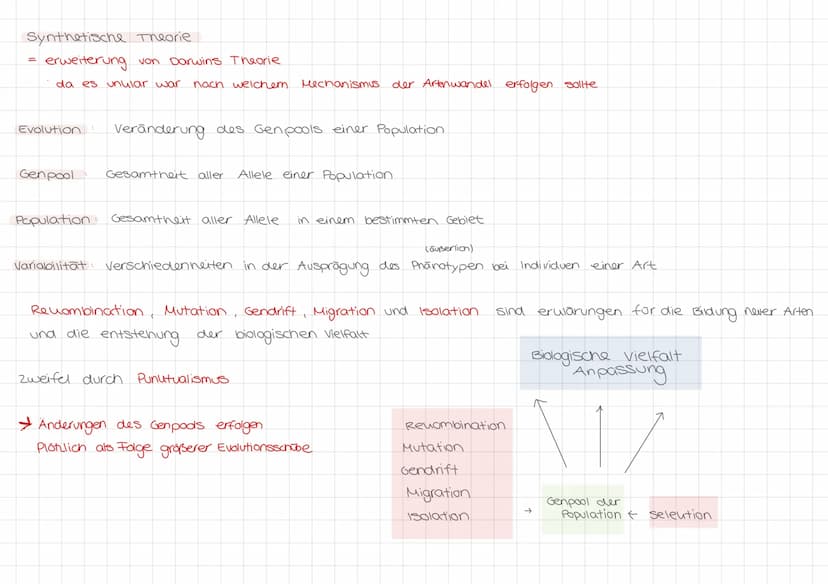 Synthetische Theorie
= erweiterung von Darwins Theorie
da es unklar war nach welchem Mechanismus der Artenwandel erfolgen sollte
Evolution: Veränderung des Genpools einer Population
Genpool: Gesamtheit aller Allele einer Population
Population: Gesamtheit aller Allele in einem bestimmten Gebiet
(äußerlich)
Variabilität: Verschiedenheiten in der Ausprägung des Phänotypen bei Individuen einer Art
Rekombination, Mutation, Gendrift, Migration und Isolation sind erklärungen für die Bildung neuer Arten
und die entstehung der biologischen Vielfalt
Biologische Vielfalt
Anpassung
Zweifel durch Punktualismus
→ Änderungen des Genpools erfolgen
Plötzlich als Folge größerer Evolutionsschübe
Rekombination
Mutation
Gendrift
Migration
Isolation
→ Genpool der
Population ← Selektion